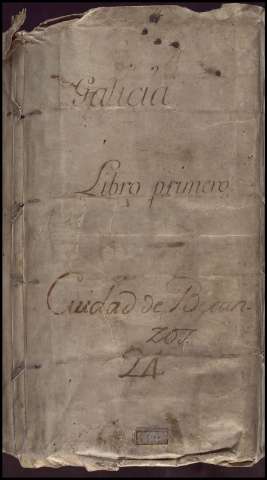 Galicia
Libro primero
Ciudad de Betan-
zos.
24